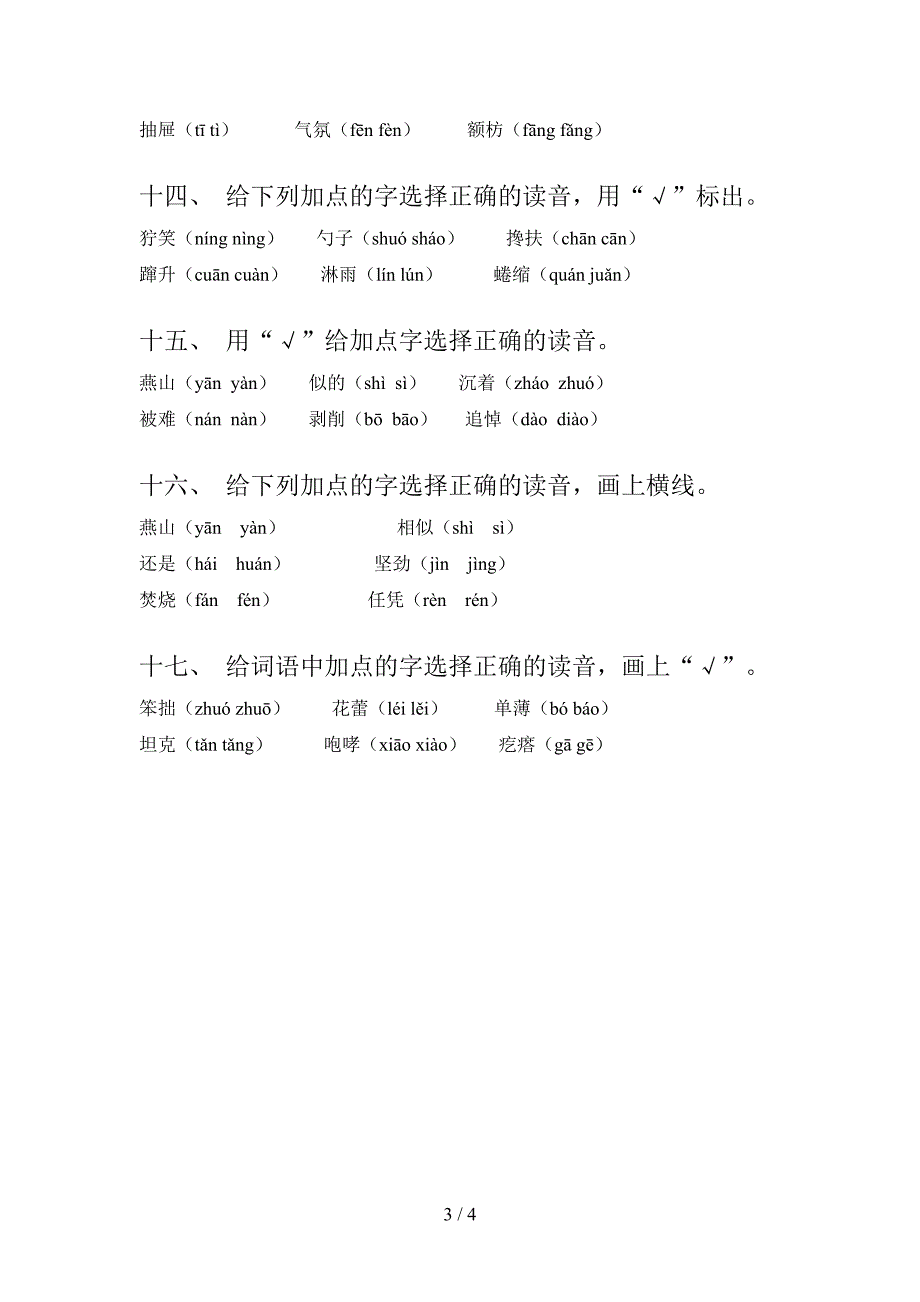 抽屉（tī tì） 气氛（fēn fèn） 额枋（fāng fǎng）
十四、 给下列加点的字选择正确的读音，用“√”标出。
狞笑（níng nìng） 勺子（shuó sháo） 搀扶（chān cān）
蹿升（cuān cuàn） 淋雨（lín lún） 蜷缩（quán juǎn）
十五、 用“√”给加点字选择正确的读音。
燕山（yān yàn） 似的（shì sì） 沉着（zháo zhuó）
被难（nán nàn） 剥削（bō bāo） 追悼（dào diào）
十六、 给下列加点的字选择正确的读音，画上横线。
燕山（yān yàn） 相似（shì sì）
还是（hái huán） 坚劲（jìn jìng）
焚烧（fán fén） 任凭（rèn rén）
十七、 给词语中加点的字选择正确的读音，画上“√”。
笨拙（zhuó zhuō） 花蕾（léi lěi） 单薄（bó báo）
坦克（tǎn tǎng） 咆哮（xiāo xiào） 疙瘩（gā gē）
3 / 4